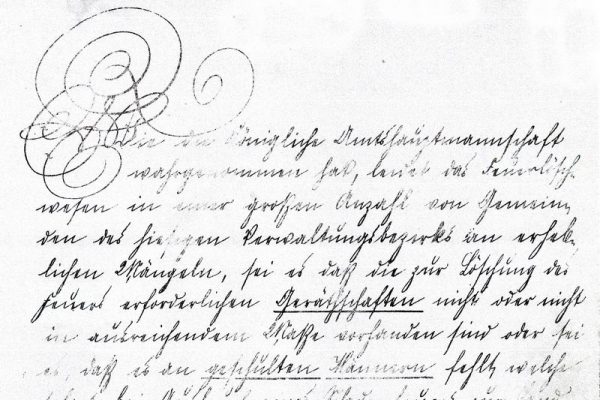 Wie die Königliche Amtshauptmannschaft
wahrgenommen hat, leidet das Feuerlösch-
wesen in einer großen Anzahl von Gemein-
den des hiesigen Verwaltungsbezirks an erheb-
lichen Mängeln, sei es daß die zur Löschung des
Feuers erforderlichen Geräthschaften nicht oder nicht
in ausreichendem Maße vorhanden sind oder sei
es, daß es an geschulten Männern fehlt, welche